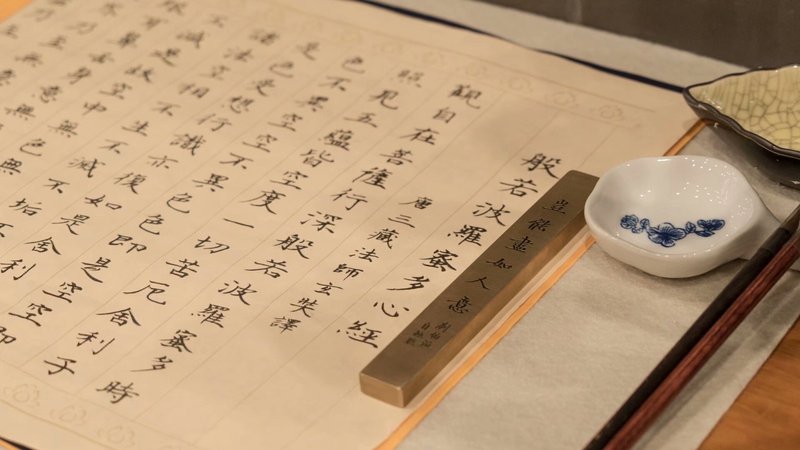 般若波羅蜜多心經
唐三藏法師玄奘譯
觀自在菩薩行深般若波羅蜜多時
照見五蘊皆空度一切苦厄舍利子
色不異空空不異色色即是空空即
是色受想行識亦復如是舍利
諸法空相不生不滅不垢不
減是故空中無色無
鼻舌身意無
豈能盡如人意